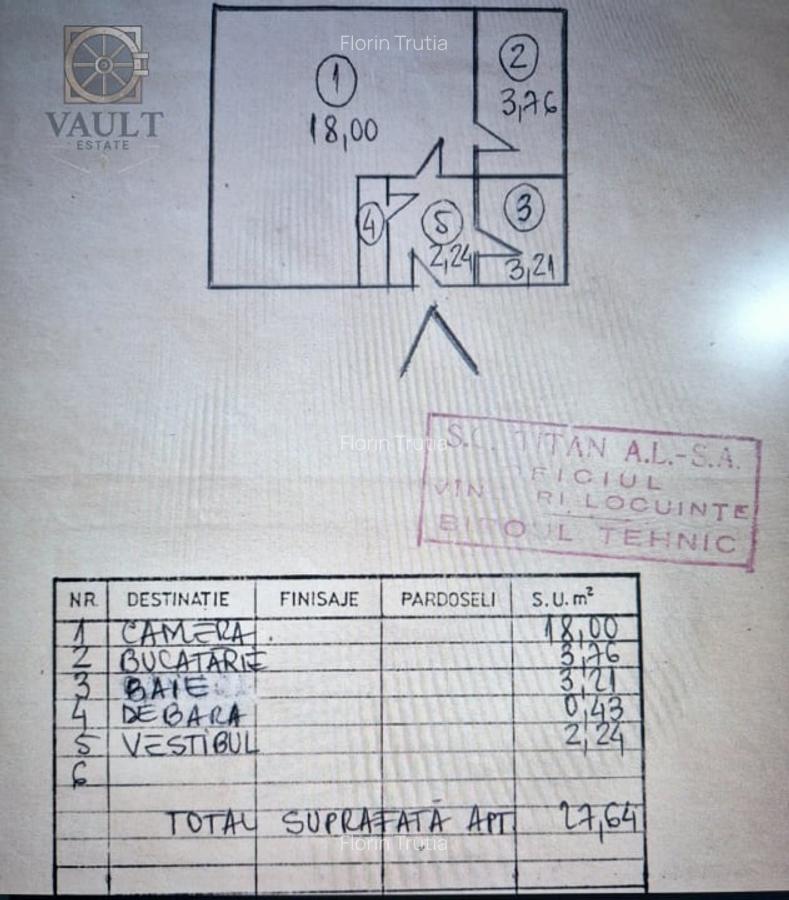 Florin Trutia
VAULT
ESTATE
1
18,00
2
3,76
3
3,21
4
5
2,24
Florin Trutia
S.C. TITAN A.L.-S.A.
OFICIUL
LOCUINTE
BIROUL TEHNIC
NR. DESTINAȚIE FINISAJE PARDOSELI S.U. m²
1 CAMERA 18,00
2 BUCATĂRIE 3,76
3 BAIE 3,21
4 DEBARA 0,43
5 VESTIBUL 2,24
6
TOTAL SUPRAFATĂ APT. 27,64
Florin Trutia